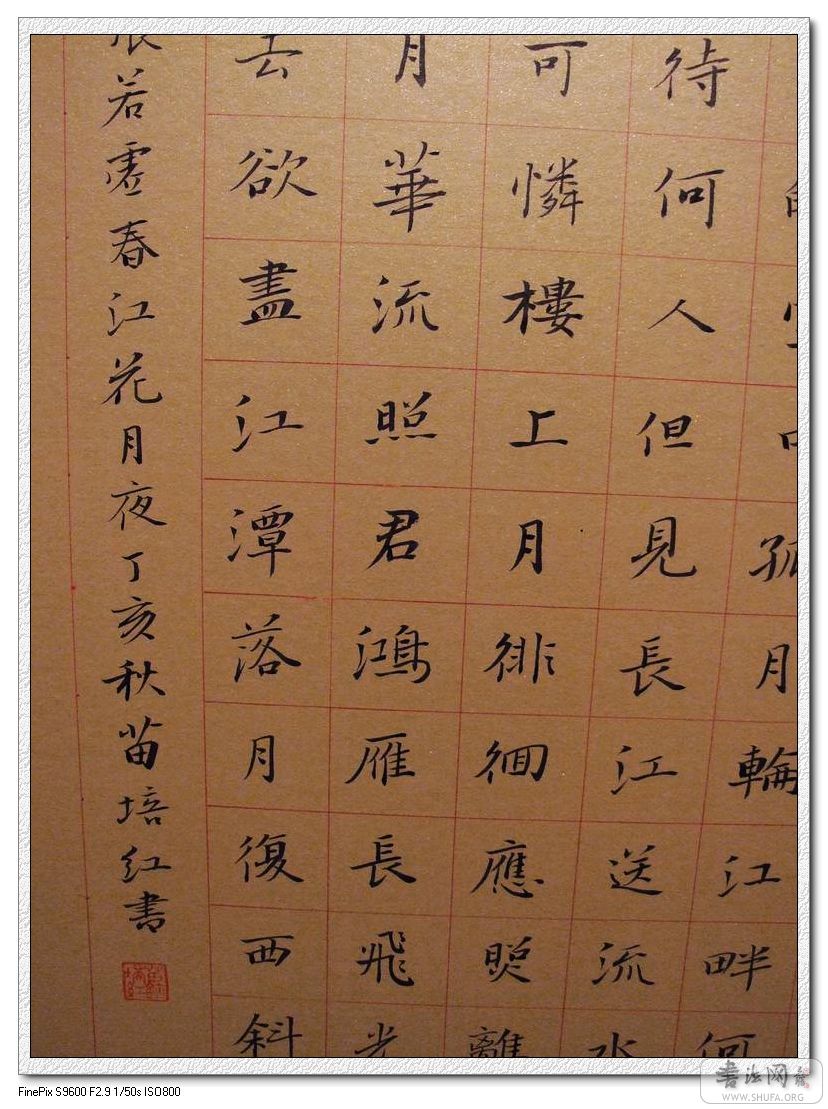 孤月輪江畔何
待何人但見長江送流水
可憐樓上月徘徊應照離
月華流照君鴻雁長飛光
去欲盡江潭落月復西斜
張若虛春江花月夜丁亥秋苗培红書
FinePix S9600 F2.9 1/50s ISO800
書法网
WWW.SHUFA.ORG